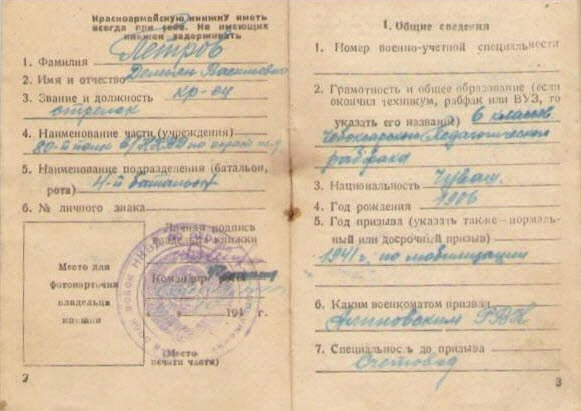 Красноармейскую книжку иметь
всегда при себе. Не имеющих
книжек задерживать
1. Фамилия Петров
2. Имя и отчество Демьян Васильевич
3. Звание и должность кр-ец
стрелок
4. Наименование части (учреждения)
80-й полк в/НКВД по охране
5. Наименование подразделения (батальон,
рота) 4-й батальон
6. № личного знака
Личная подпись
владельца книжки
Место для
фотокарточки
владельца
книжки
Командир
194 г.
(Место
печати части)
2
I. Общие сведения
1. Номер военно-учетной специальности
2. Грамотность и общее образование (если
окончил техникум, рабфак или ВУЗ, то
указать его название) 6 классов
Чебоксарский Педагогический
рабфак
3. Национальность Чуваш.
4. Год рождения 1906
5. Год призыва (указать также—нормаль-
ный или досрочный призыв)
1941 г. по мобилизации
6. Каким военкоматом призван
Аликовским РВК
7. Специальность до призыва
Счетовод
3